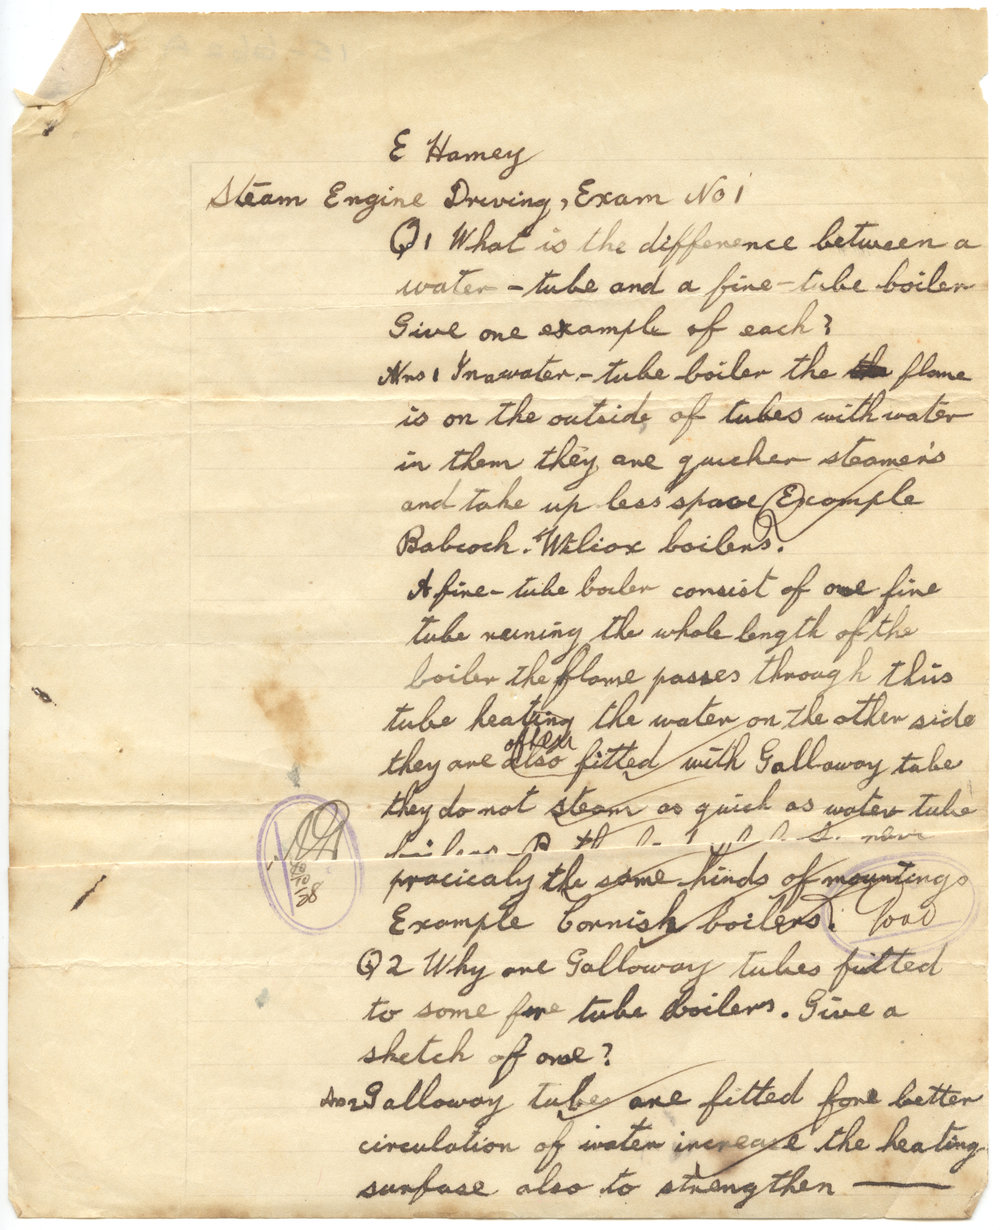 E Hamey
Steam Engine Driving, Exam No 1
Q1 What is the difference between a
water-tube and a fire-tube boiler
Give one example of each?
Ans 1 In a water-tube boiler the flame
is on the outside of tubes with water
in them they are quicker steamer's
and take up less space Example
Babcock. Wilcox boilers.
A fire-tube boiler consist of one fire
tube running the whole length of the
boiler the flame passes through this
tube heating the water on the other side
often
they are also fitted with Galloway tube
they do not steam as quick as water tube
boilers
pracicaly the same kinds of mountings
Example Cornish boilers.
Q2 Why are Galloway tubes fitted
to some fire tube boilers. Give a
sketch of one?
Ans 2 Galloway tubes are fitted fore better
circulation of water increase the heating
surfase also to strengthen —